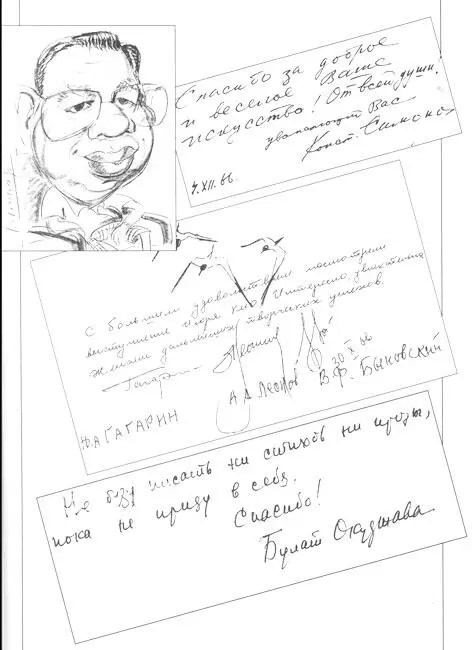 Спасибо за доброе
и веселое Ваше
искусство! От всей души,
уважающий Вас
Конст. Симонов
4.XII.66.
С большим удовольствием посмотрели
выступление Игоря Кио. Интересно, увлекательно
Желаем дальнейших творческих успехов.
Гагарин Леонов
20 X 66
Ю.А ГАГАРИН А.А Леонов В.Ф. Быковский
Не буду писать ни стихов ни прозы,
пока не приду в себя.
Спасибо!
Булат Окуджава